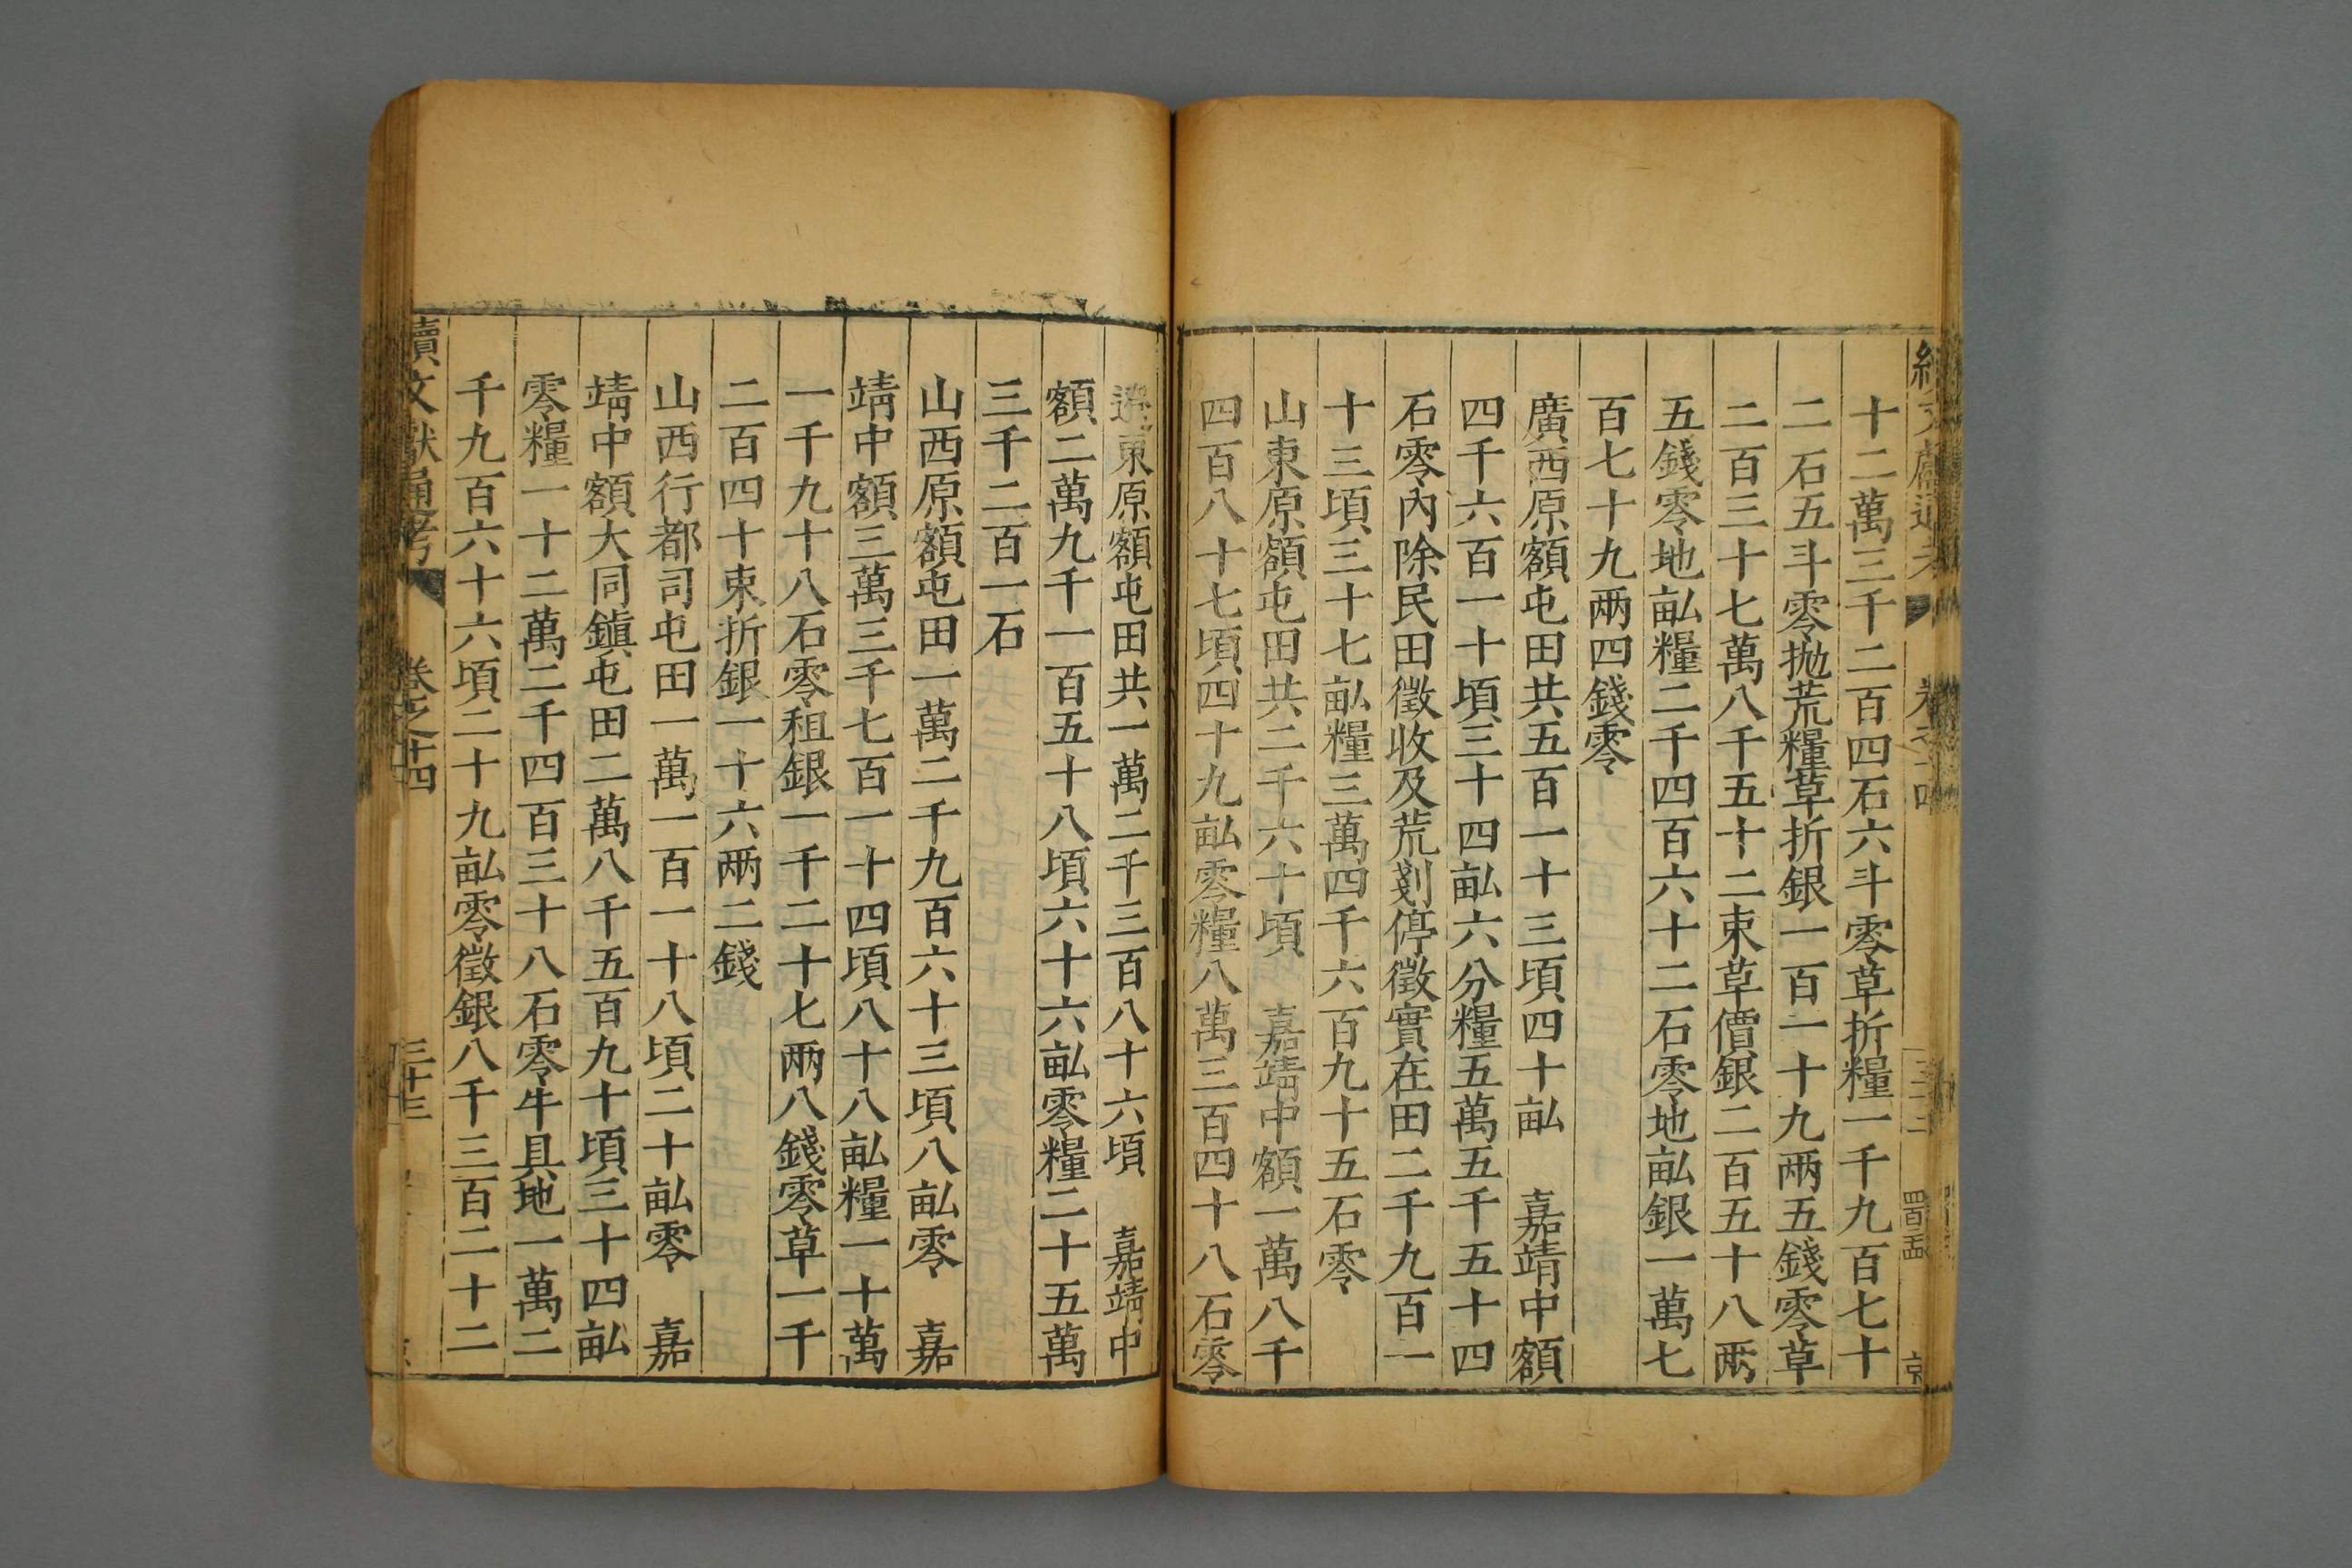 十二萬三千二百四石六斗零草折糧一千九百七十
二石五斗零抛荒糧草折銀一百一十九兩五錢零草
二百三十七萬八千五十二束草價銀二百五十八兩
五錢零地畆糧二千四百六十二石零地畆銀一萬七
百七十九兩四錢零
廣西原額屯田共五百一十三頃四十畆 嘉靖中額
四千六百一十頃三十四畆六分糧五萬五千五十四
石零內除民田徵收及荒剗停徵實在田二千九百一
十三頃三十七畆糧三萬四千六百九十五石零
山東原額屯田共二千六十頃 嘉靖中額一萬八千
四百八十七頃四十九畆零糧八萬三百四十八石零
遼東原額屯田共一萬二千三百八十六頃 嘉靖中
額二萬九千一百五十八頃六十六畆零糧二十五萬
三千二百一石
山西原額屯田一萬二千九百六十三頃八畆零 嘉
靖中額三萬三千七百一十四頃八十八畆糧一十萬
一千九十八石零租銀一千二十七兩八錢零草一千
二百四十束折銀一十六兩二錢
山西行都司屯田一萬一百一十八頃二十畆零 嘉
靖中額大同鎮屯田二萬八千五百九十頃三十四畆
零糧一十二萬二千四百三十八石零牛具地一萬二
千九百六十六頃二十九畆零徵銀八千三百二十二
續文獻通考 卷之十四 三十三